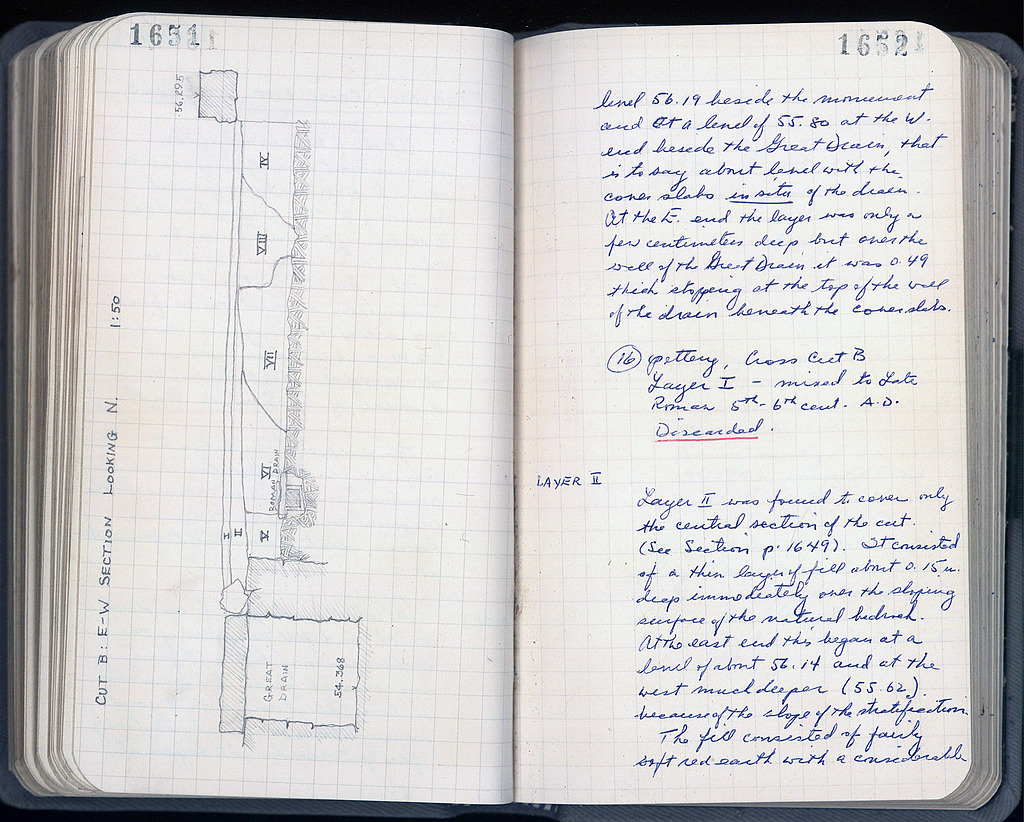 1651
CUT B: E-W SECTION LOOKING N. 1:50
56.295
IV
VIII
VII
VI
ROMAN DRAIN
I
II
V
GREAT
DRAIN
54.368
1652
level 56.19 beside the monument
and at a level of 55.80 at the W.
end beside the Great Drain, that
is to say about level with the
cover slabs in situ of the drain.
At the E. end the layer was only a
few centimeters deep but over the
wall of the Great Drain it was 0.49
thick stopping at the top of the wall
of the drain beneath the cover slabs.
16 pottery, Cross Cut B
Layer I - mixed to Late
Roman 5th-6th cent. A.D.
Discarded.
LAYER II
Layer II was found to cover only
the central section of the cut.
(See Section p. 1649). It consisted
of a thin layer of fill about 0.15 m.
deep immediately over the sloping
surface of the natural bedrock.
At the east end this began at a
level of about 56.14 and at the
west much deeper (55.62).
because of the slope of the stratification.
The fill consisted of fairly
soft red earth with a considerable